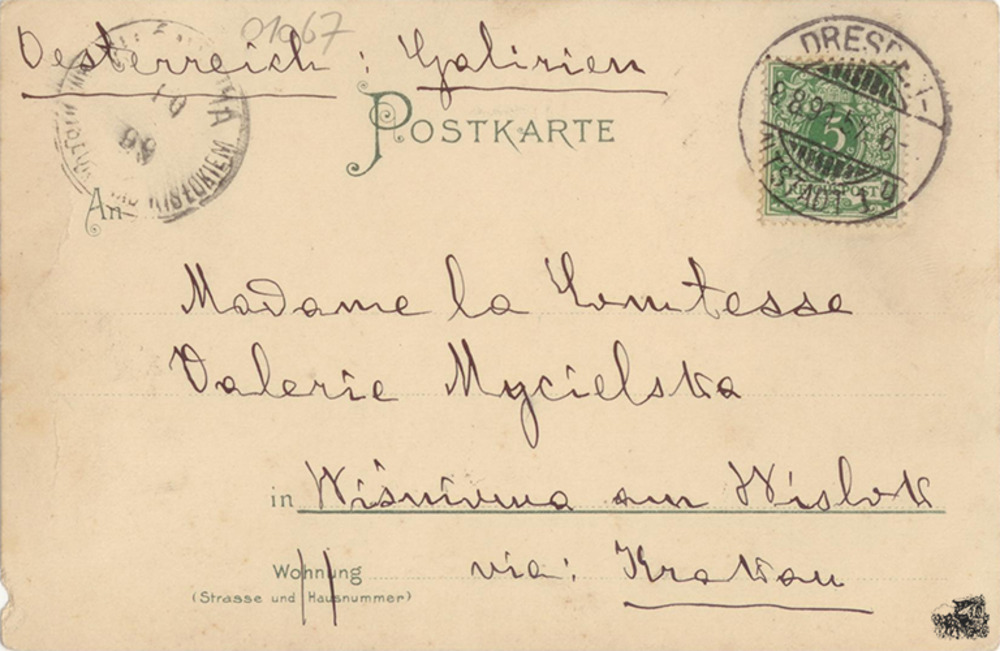 01067
Oesterreich : Galizien
POSTKARTE
DRESDEN-
8.8.99. 6-
ALTSTADT 1 D
5
REICHSPOST
WISŁOKIEM
99
An
Madame la Comtesse
Valerie Mycielska
in Wiśniowa am Wislok
Wohnung via: Krakau
(Strasse und Hausnummer)